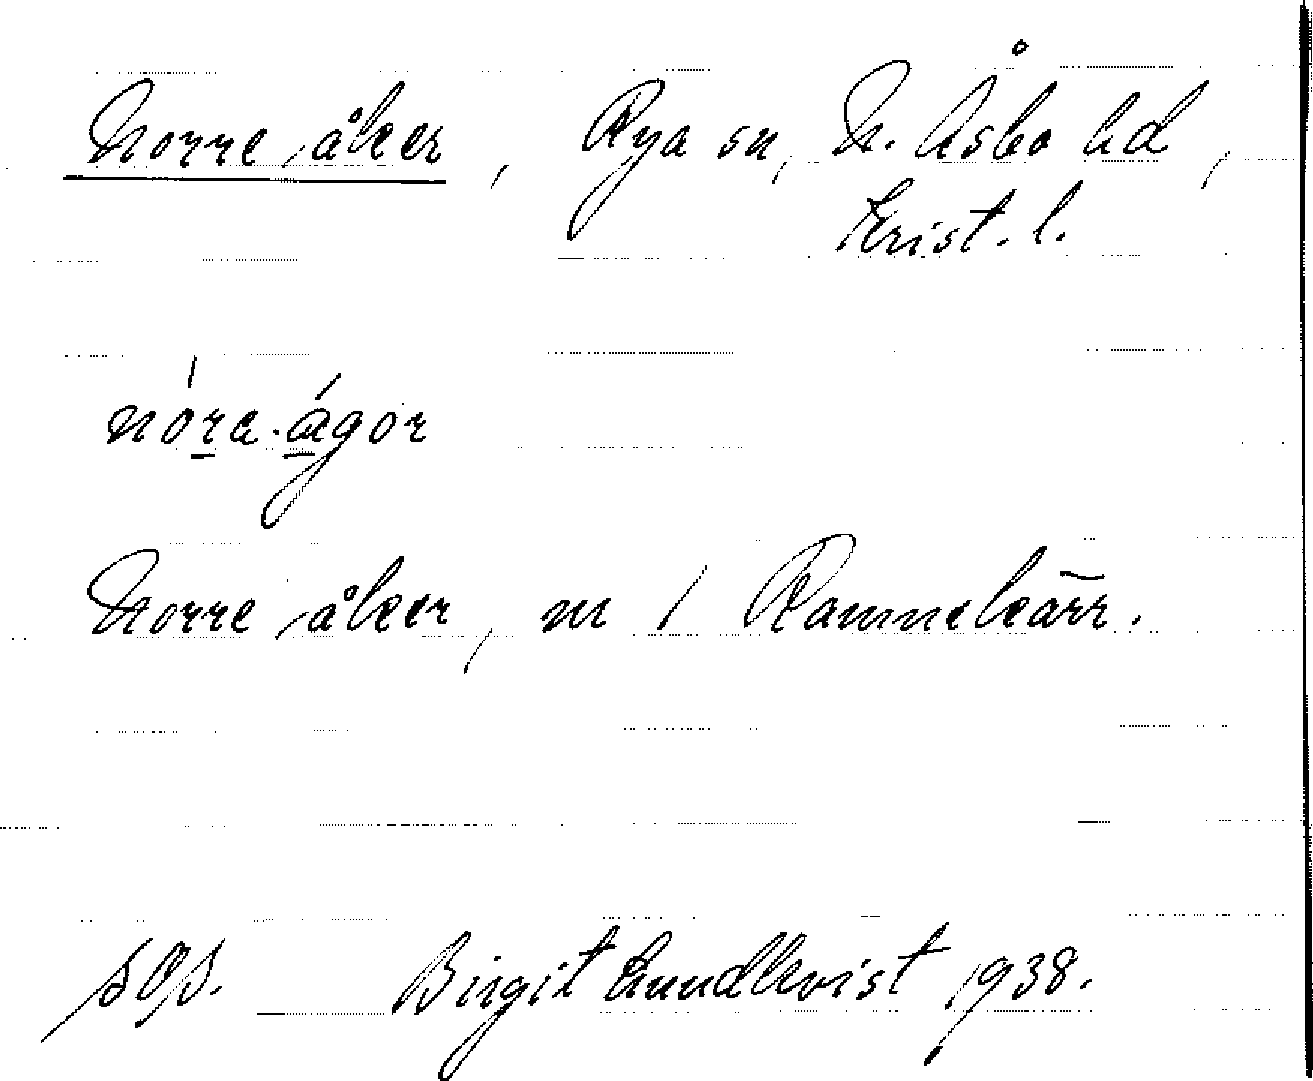 Norre åker, Rya sn, N. Åsbo hd,
Krist. l.
nóra-ágor
Norre åker, nr 1 Rammekärr.
sOs. Birgit Lundkvist 1938.